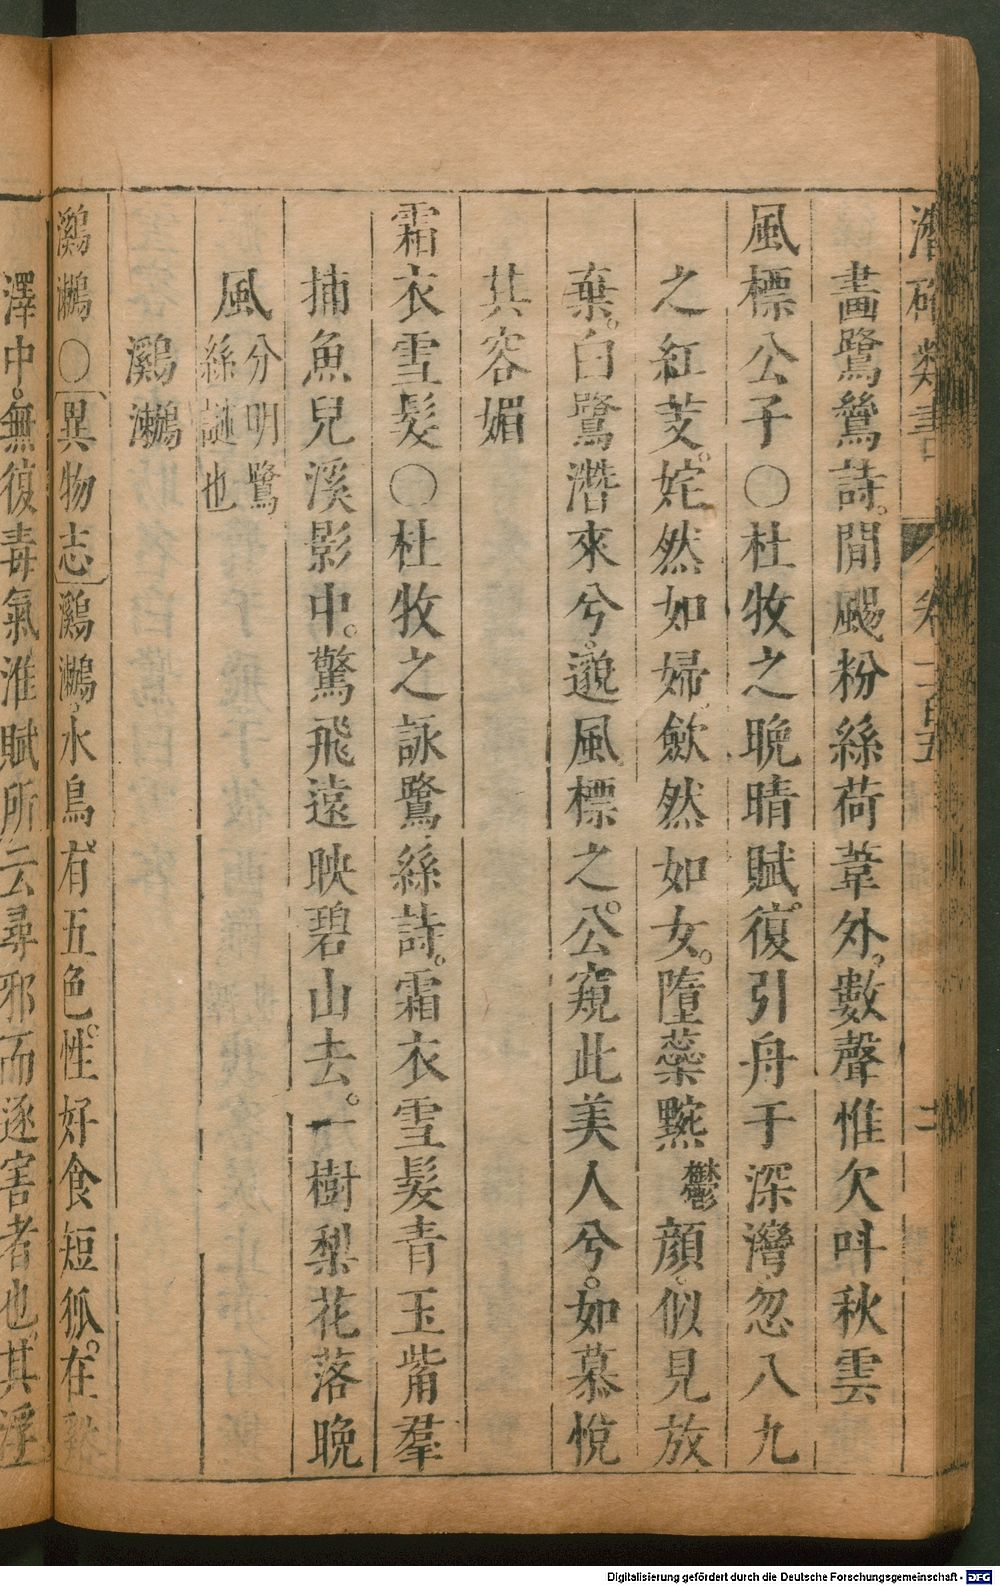 潛確類書 卷一百五 二
畫鷺鷥詩。閒颺粉絲荷葦外，數聲惟欠呌秋雲
風標公子○杜牧之晚晴賦。復引舟于深灣，忽八九
之紅芰。姹然如婦，歛然如女。墮蘂黦鬱顔，似見放
棄。白鷺潛來兮。邈風標之公。窺此美人兮。如慕悅
其容媚
霜衣雪髮○杜牧之詠鷺絲詩。霜衣雪髮青玉觜羣
捕魚兒溪影中。驚飛遠映碧山去。一樹梨花落晚
風分明鷺絲謎也
鸂鷘
鸂鷘○〔異物志〕鸂鷘，水鳥，有五色。性好食短狐。在
澤中，無復毒氣淮賦所云尋邪而逐害者也，其浮
Digitalisierung gefördert durch die Deutsche Forschungsgemeinschaft - DFG